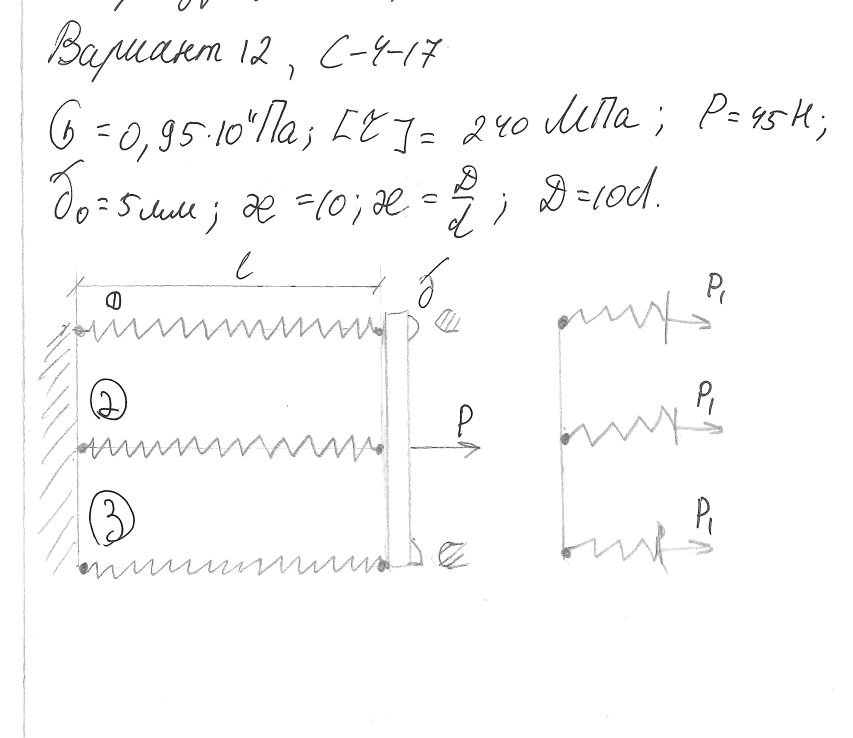 Вариант 12, С-4-17
G = 0,95·10¹¹ Па; [τ] = 240 МПа; P = 45 Н;
δ₀ = 5 мм; æ = 10; æ = D/d; D = 10d.
l
① δ P₁
② P P₁
③ P₁